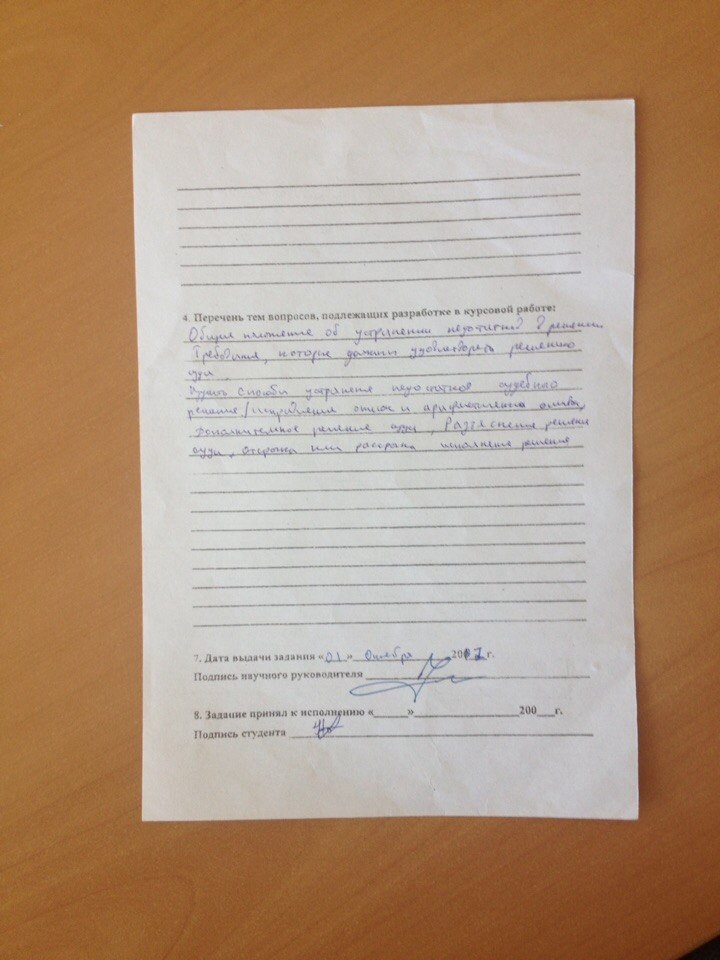 4. Перечень тем вопросов, подлежащих разработке в курсовой работе:
Общие положение об устранении недостатков в решении
Требования, которые должны удовлетворять решению
суда
способы устранение недостатков судебного
решение/исправления описок и арифметических ошибок,
дополнительное решение суда, Разъяснения решения
суда, отсрочка или рассрочка исполнение решение
7. Дата выдачи задания «01» Октября 2017 г.
Подпись научного руководителя
8. Задание принял к исполнению «______»__________________200___г.
Подпись студента